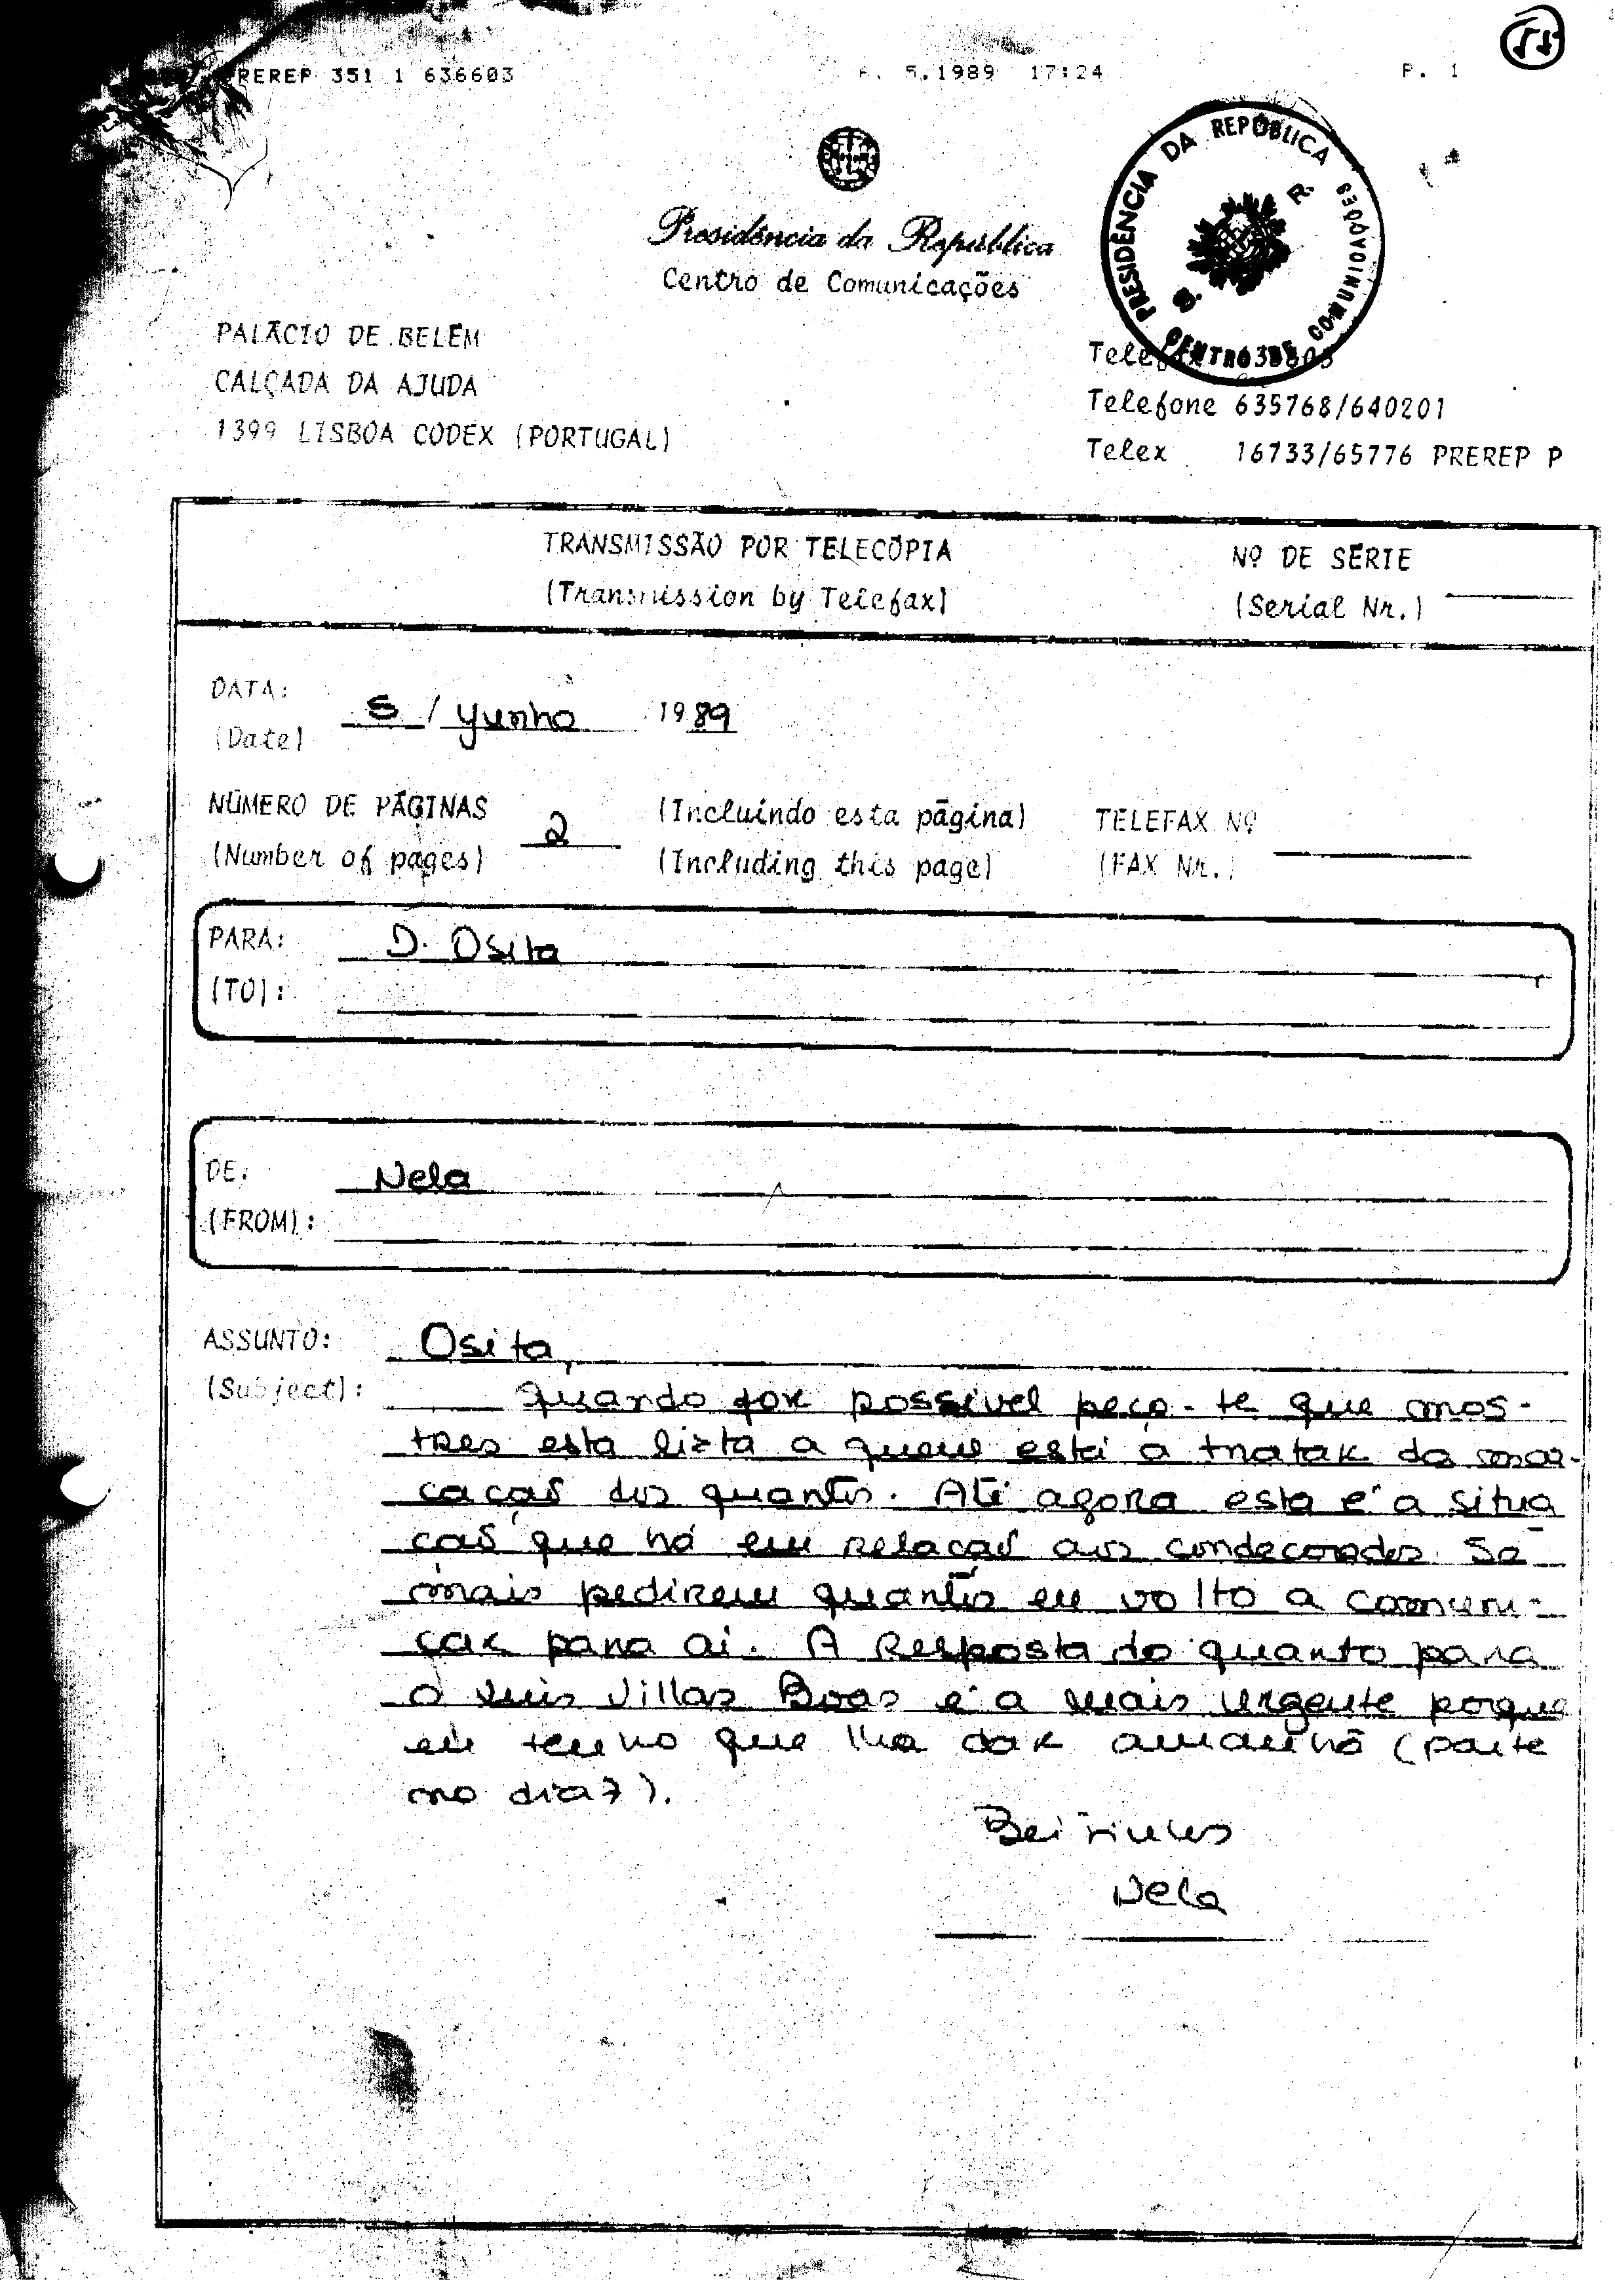 PREREP 351 1 636603 5.1989 17:24 P. 1
Presidência da República
Centro de Comunicações
PRESIDÊNCIA DA REPÚBLICA
CENTRO DE COMUNICAÇÕES
S. R.
PALÁCIO DE BELÉM
CALÇADA DA AJUDA
1399 LISBOA CODEX (PORTUGAL)
Telefax
Telefone 635768/640201
Telex 16733/65776 PREREP P
TRANSMISSÃO POR TELECÓPIA Nº DE SÉRIE
(Transmission by Telefax) (Serial Nr.)
DATA: 5 / Junho 1989
(Date)
NÚMERO DE PÁGINAS 2 (Incluindo esta página) TELEFAX Nº
(Number of pages) (Including this page) (FAX Nr.)
PARA: D. Osita
(TO):
DE: Nela
(FROM):
ASSUNTO: Osita,
(Subject): quando for possível peço-te que mos-
tres esta lista a quem está a tratar da mar-
cação dos quartos. Até agora esta é a situa
ção que há em relação aos condecorados. Se
mais pedirem quartos eu volto a comuni-
car para aí. A Resposta do quarto para
o Luis Villas Boas é a mais urgente porque
eu tenho que lha dar amanhã (parte
no dia 7).
Beijinhos
Nela